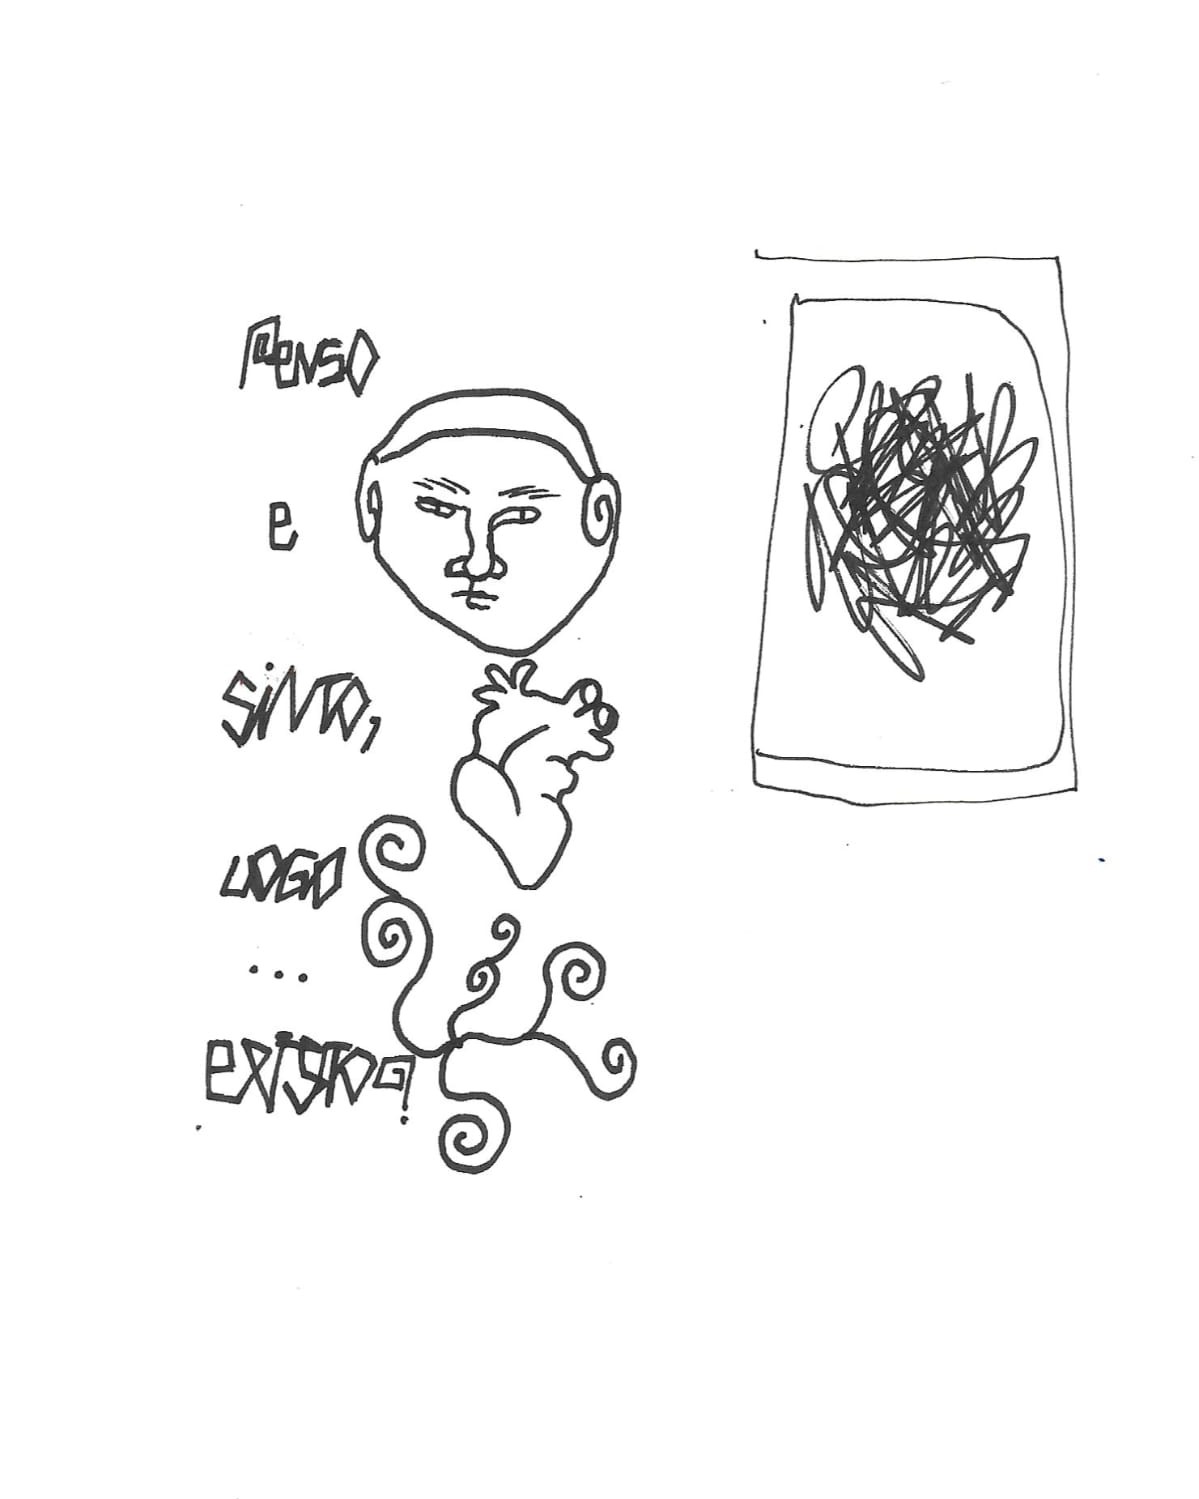 Penso
e
Sinto,
LOGO
...
existo?